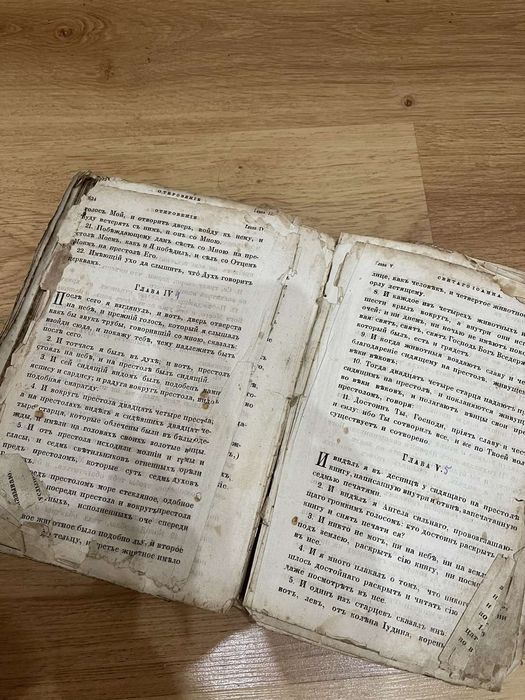 624
ОТКРОВЕНІЕ
ОТКРОВЕНІЕ
Глава IV.
голосъ Мой, и отворитъ дверь, войду къ нему, и
буду вечерять съ нимъ, и онъ со Мною.
21. Побѣждающему дамъ сѣсть со Мною на пре-
столѣ Моемъ, какъ и Я побѣдилъ, и сѣлъ со Отцемъ
Моимъ на престолѣ Его.
22. Имѣющій ухо да слышитъ, что Духъ говоритъ
церквамъ.
ГЛАВА IV. 4
Послѣ сего я взглянулъ, и вотъ, дверь отверста
на небѣ, и прежній голосъ, который я слышалъ
какъ бы звукъ трубы, говорившій со мною, сказалъ:
взойди сюда, и покажу тебѣ, чему надлежитъ быть
послѣ сего.
2. И тотчасъ я былъ въ духѣ; и вотъ, престолъ
стоялъ на небѣ, и на престолѣ былъ сидящій.
3. И сей сидящій видомъ былъ подобенъ камню
яспису и сардису, и радуга вокругъ престола, видомъ
подобная смарагду.
4. И вокругъ престола двадцать четыре престо-
ла; на престолахъ видѣлъ я сидѣвшихъ двадцать че-
тыре старца, которые облечены были въ бѣлыя оде-
жды, и имѣли на головахъ своихъ золотые вѣнцы.
5. И отъ престола исходили молніи и громы и
гласы, и седмь свѣтильниковъ огненныхъ горѣли
предъ престоломъ, которые суть седмь духовъ
предъ престоломъ море стеклянное, подобное
посреди престола и вокругъ престола
животныхъ, исполненныхъ очей спереди
животное было подобно льву, и второе
тельцу, и третье животное имѣло
Глава V.
СВЯТАГО ІОАННА.
лице, какъ человѣкъ, и четвертое животное
орлу летящему.
8. И каждое изъ четырехъ животныхъ
шести крылъ вокругъ, а внутри они
очей; и ни днемъ, ни ночью не имѣютъ покоя
вая: святъ, святъ, святъ Господь Богъ Вседержитель
который былъ, есть и грядетъ.
9. И когда животныя воздаютъ славу и
благодареніе сидящему на престолѣ, живущему
вѣки вѣковъ,
10. Тогда двадцать четыре старца падаютъ
сидящимъ на престолѣ, и покланяются живущему
во вѣки вѣковъ, и полагаютъ вѣнцы свои
престоломъ, говоря:
11. Достоинъ Ты, Господи, пріять славу и честь
и силу: ибо Ты сотворилъ все, и все по Твоей волѣ
существуетъ и сотворено.
ГЛАВА V. 5
И видѣлъ я въ десницѣ у сидящаго на престолѣ
книгу, написанную внутри и отвнѣ, запечатанную
седмью печатями.
2. И видѣлъ я Ангела сильнаго, провозглашаю-
щаго громкимъ голосомъ: кто достоинъ раскрыть
книгу и снять печати ея?
3. И никто не могъ, ни на небѣ, ни на землѣ
подъ землею, раскрыть сію книгу, ни посмо
4. И я много плакалъ о томъ, что никого
шлось достойнаго раскрыть и читать сію
даже посмотрѣть въ нее.
5. И одинъ изъ старцевъ сказалъ мнѣ:
вотъ, левъ, отъ колѣна Іудина, корень